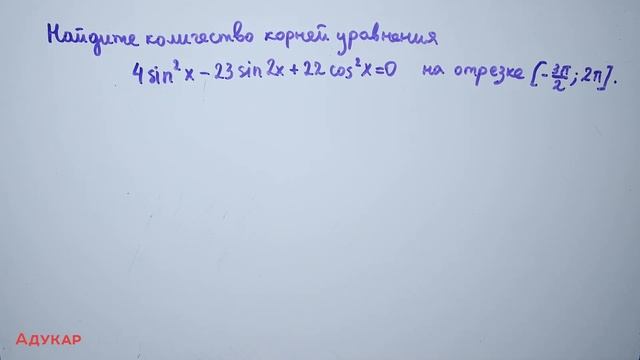 Найдите количество корней уравнения
4 sin²x - 23 sin 2x + 22 cos²x = 0 на отрезке [-3π/2; 2π].
АДУКАР